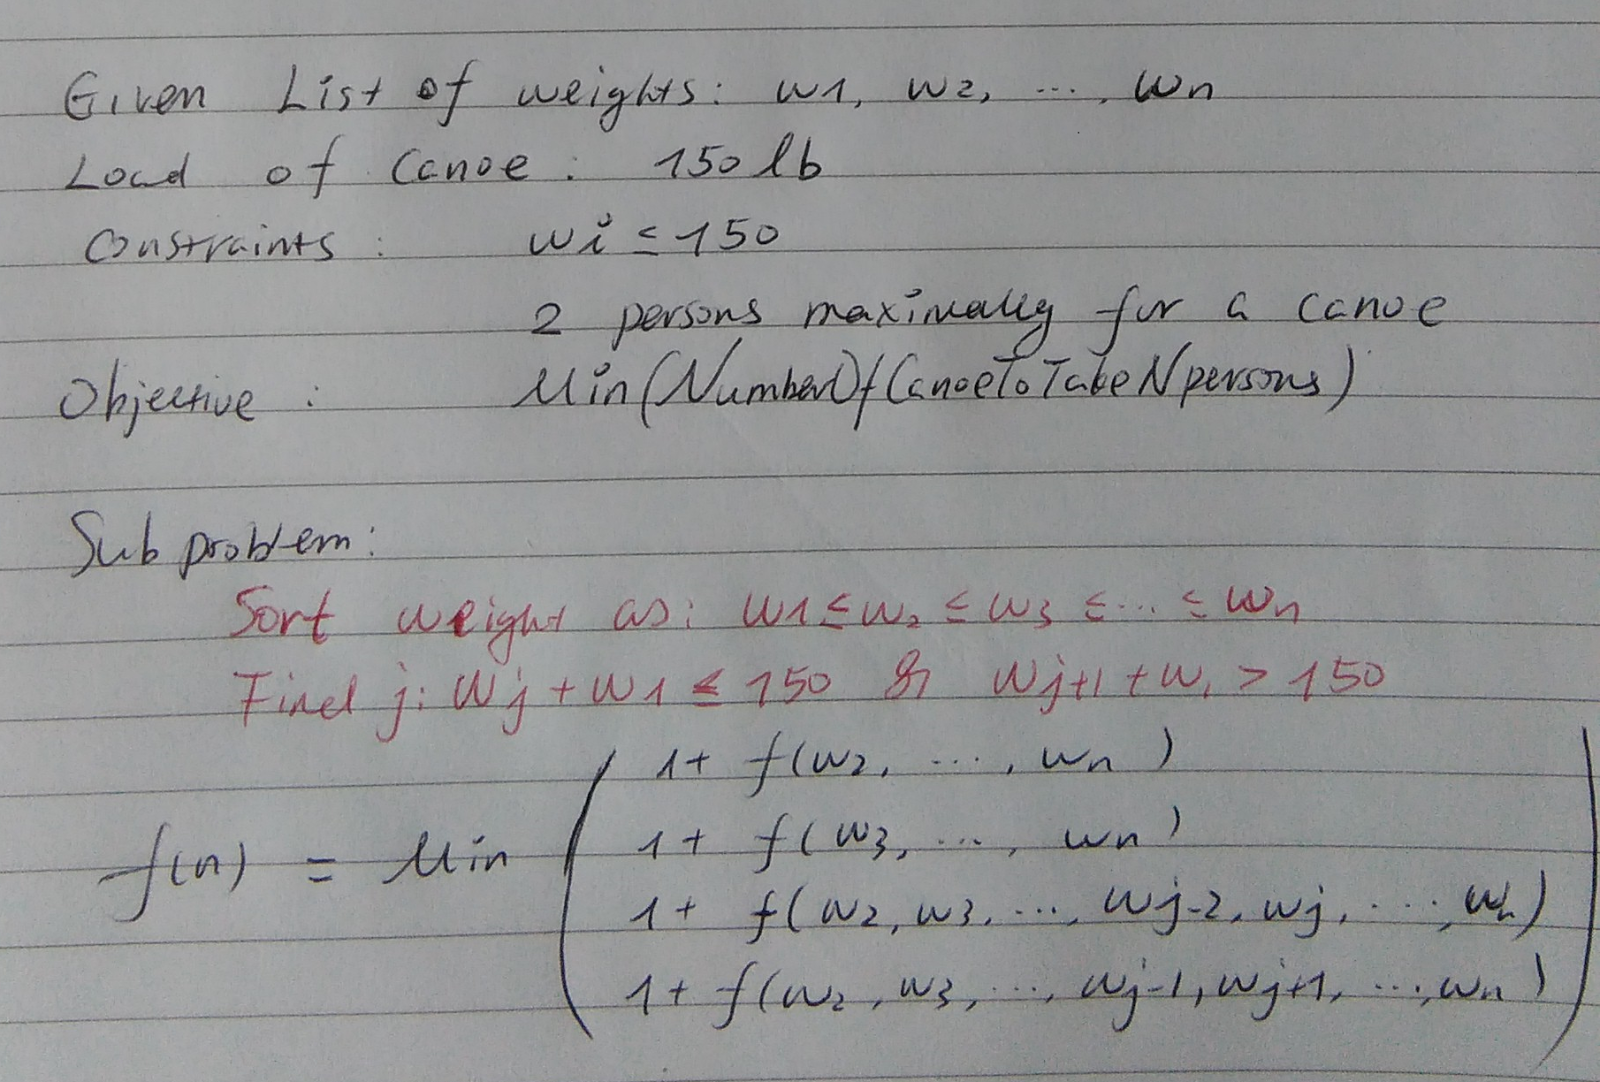 Given List of weights: w1, w2, ..., wn
Load of Canoe: 150 lb
Constraints: wi ≤ 150
2 persons maximally for a canoe
Objective: Min(NumberOfCanoeToTakeNpersons)
Sub problem:
Sort weight as: w1 ≤ w2 ≤ w3 ≤ ... ≤ wn
Find j: wj + w1 ≤ 150 & wj+1 + w1 > 150
1 + f(w2, ..., wn)
1 + f(w3, ..., wn)
f(n) = Min
1 + f(w2, w3, ..., wj-2, wj, ..., wn)
1 + f(w2, w3, ..., wj-1, wj+1, ..., wn)